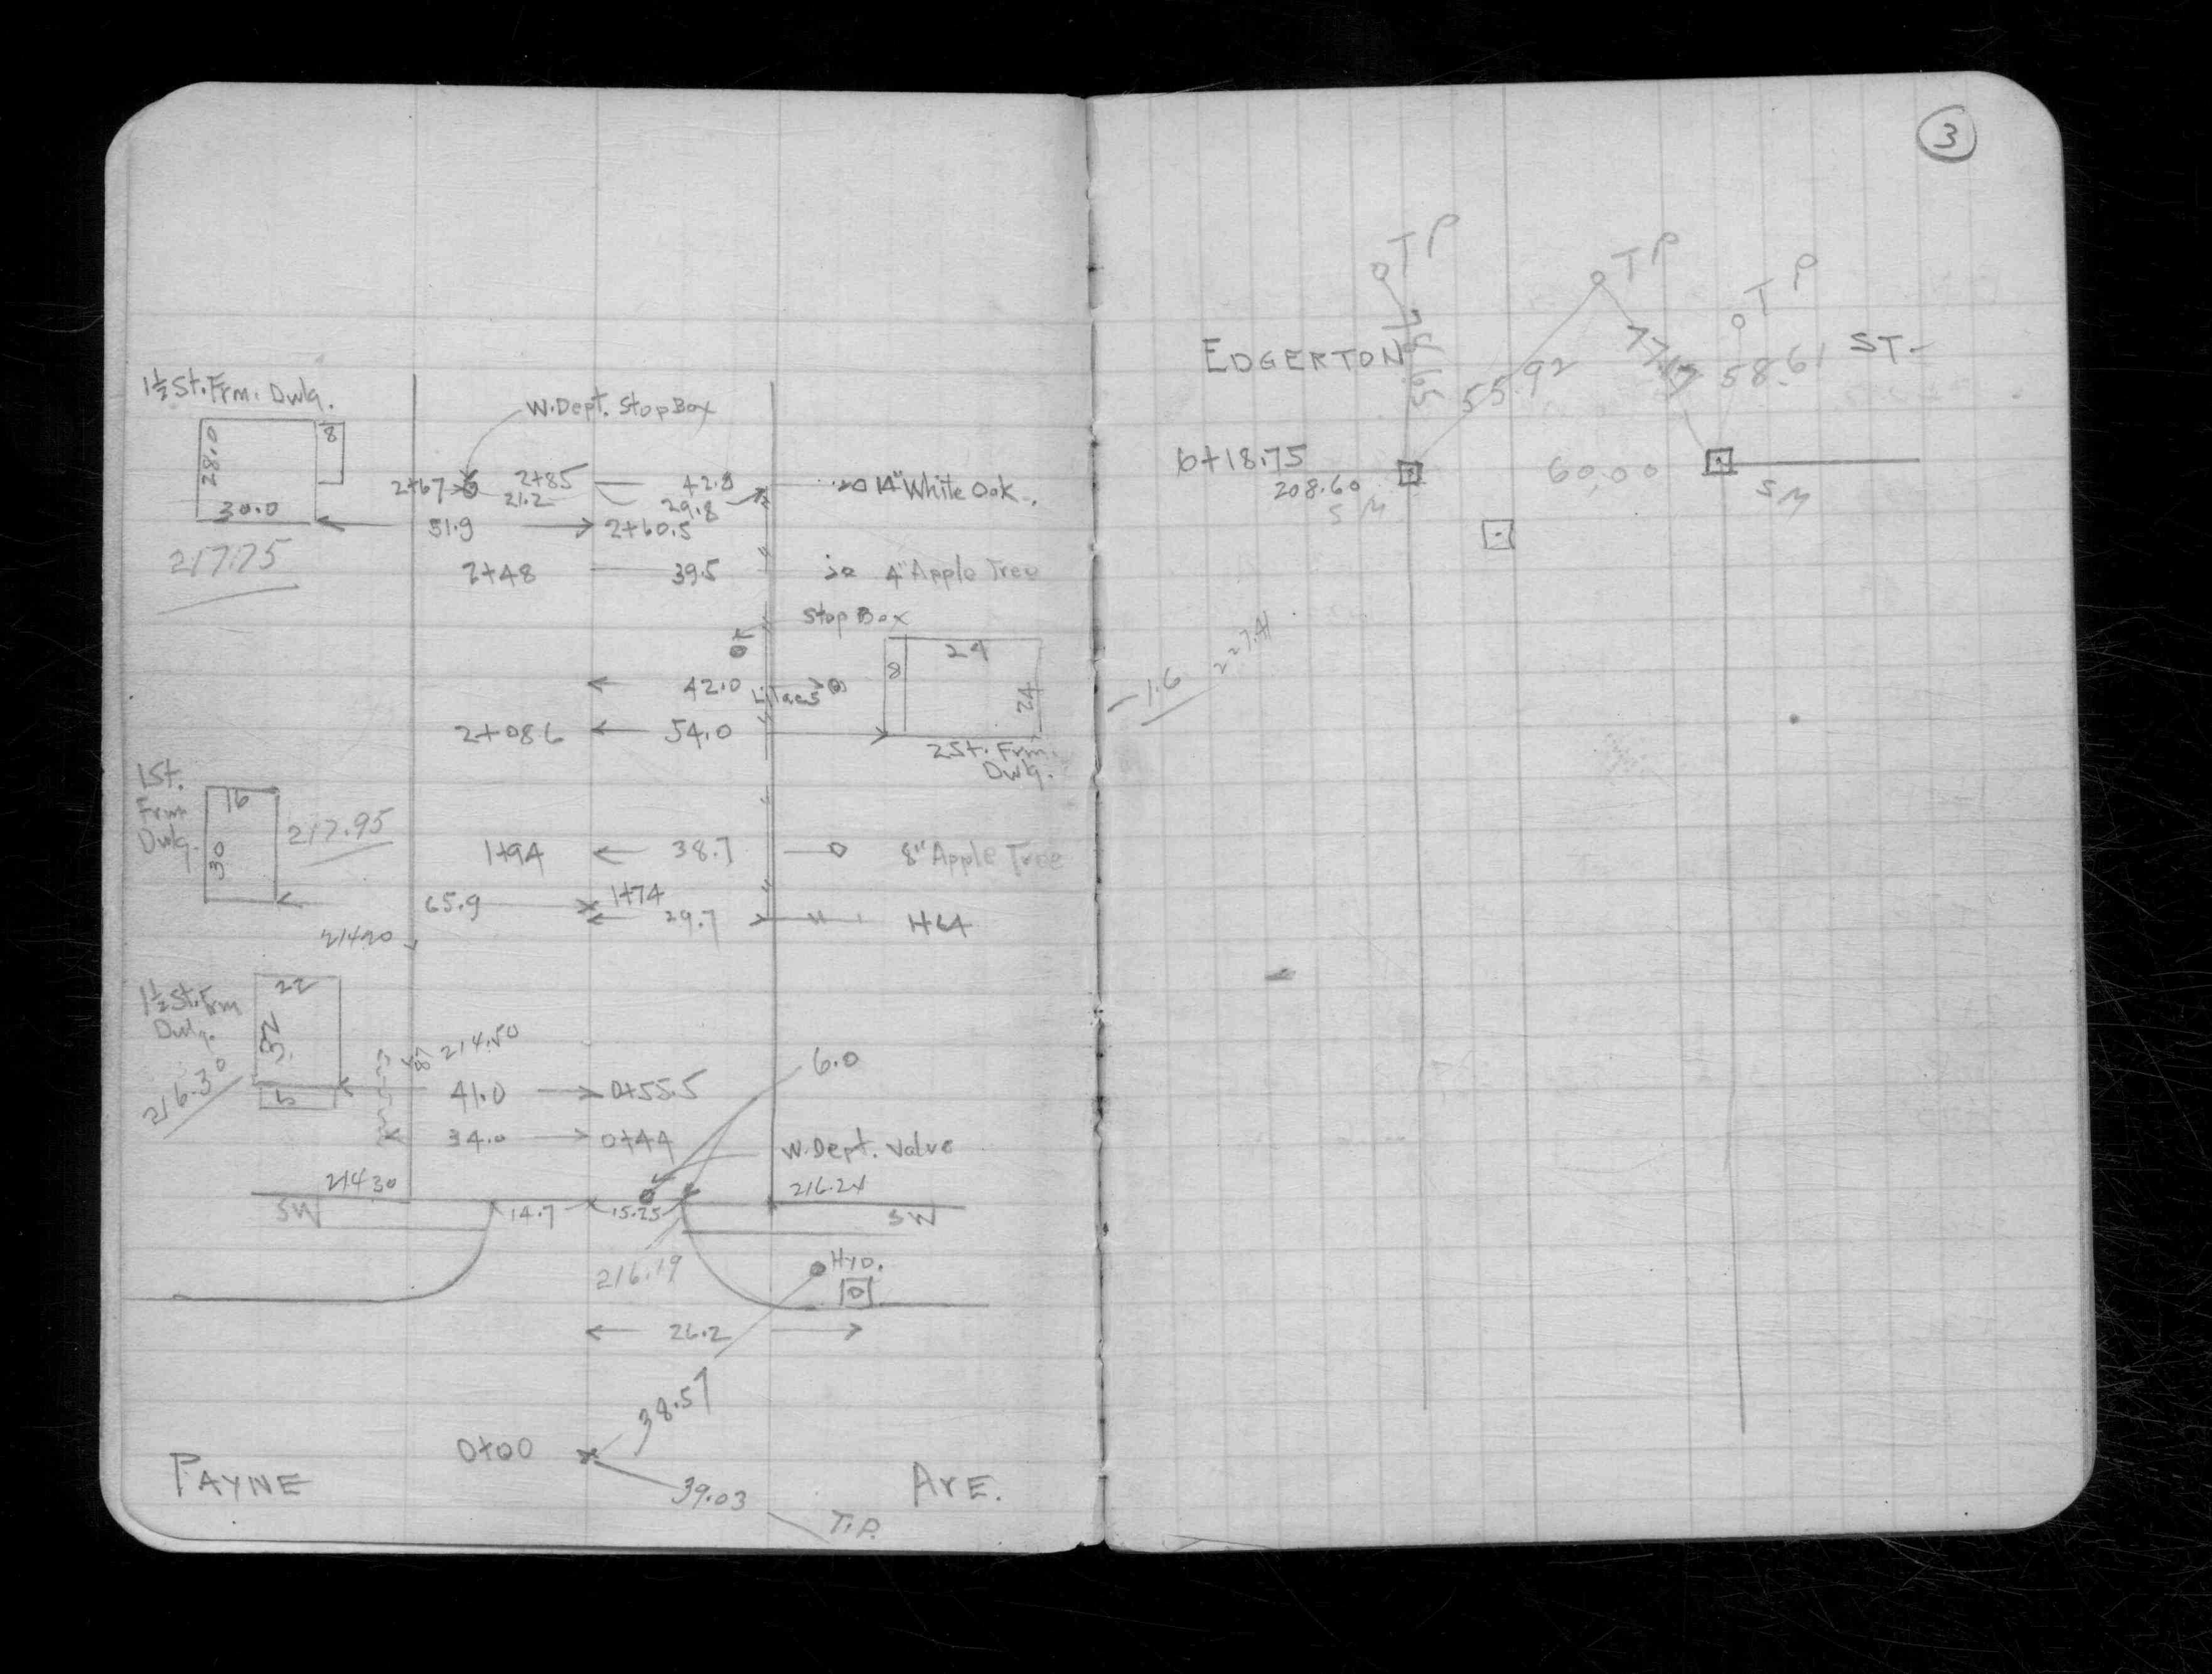 1½ St. Frm. Dwlg.
W. Dept. Stop Box
28.0
8
30.0
2+67
2+85
21.2
42.8
29.8
14" White Oak.
51.9
2+60.5
217.75
2+48
39.5
4" Apple Tree
Stop Box
40
8
24
24
42.0
Lilacs
2+08.6
54.0
2 St. Frm.
Dwlg.
1 St.
Frm
Dwlg.
16
30
217.95
1+94
38.7
8" Apple Tree
65.9
1+74
29.7
1+64
214.20
1½ St. Frm
Dwlg.
22
32
5
216.30
214.50
6.0
41.0
0+55.5
34.0
0+44
W. Dept. Valve
214.30
216.24
SW
14.7
15.25
SW
216.19
Hyd.
26.2
38.57
0+00
39.03
PAYNE
AVE.
T.P.
3
TP
TP
TP
EDGERTON
ST.
78.65
55.92
77.17
58.61
6+18.75
208.60
SM
60.00
SM
227.41
-1.6